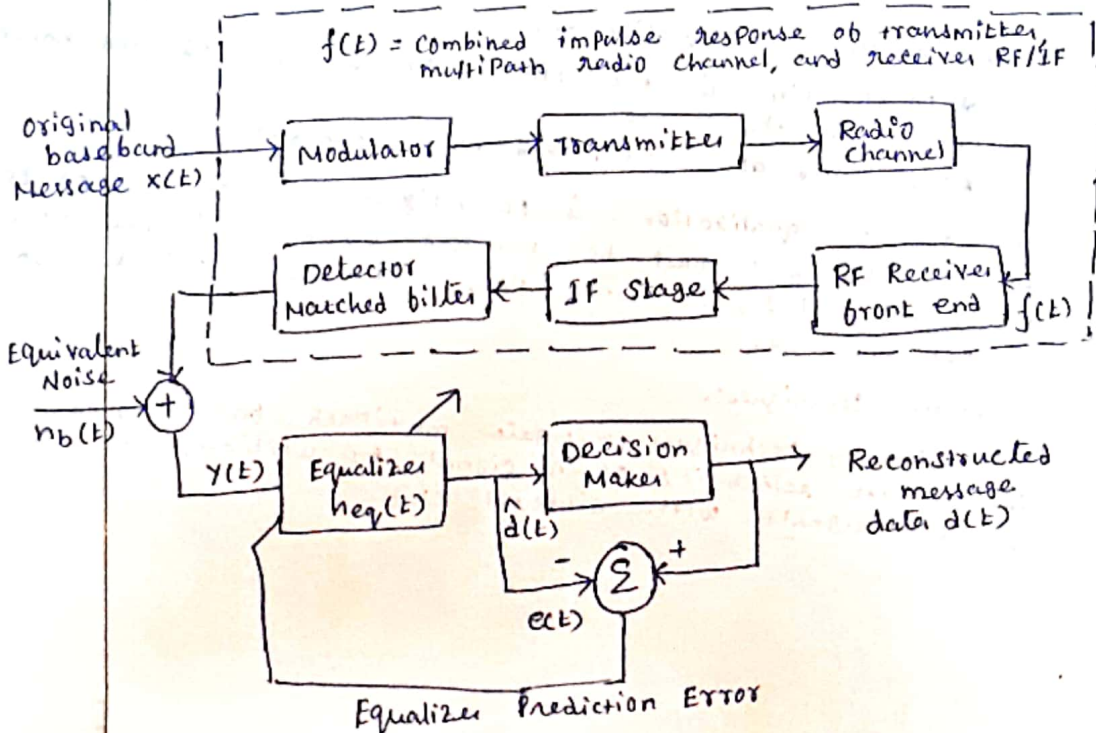 f(t) = combined impulse response ob transmitter,
multiPath radio channel, and receiver RF/IF
Original
baseband
Message x(t)
Modulator
Transmitter
Radio
Channel
Detector
Matched bilter
IF Stage
RF Receiver
bront end
f(t)
Equivalent
Noise
+
nb(t)
y(t)
Equalizer
heq(t)
d̂(t)
Decision
Maker
Reconstructed
message
data d(t)
-
+
Σ
e(t)
Equalizer Prediction Error